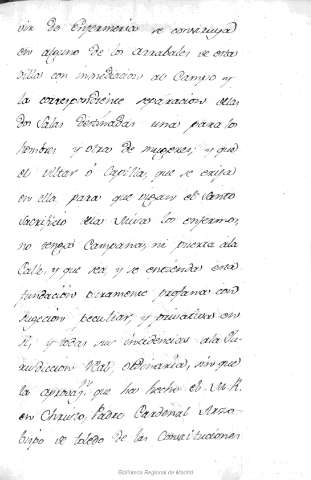 vir de enfermerias se construya
en alguno de los arrabales de esta
Villa con inmediacion al Campo y
la correspondiente separacion de las
dos Salas destinadas una para los
hombres y otra de mugeres; y que
el Altar ó Capilla, que se erija
en ella para que oigan el Santo
Sacrificio de la Misa los enfermos,
no tenga Campana, ni puerta ala
Calle, y que sea, y se entienda esta
fundacion puramente profana con
sugecion peculiar, y privativa en
sí, y todas sus incidencias ala Ju-
risdiccion Real, ordinaria, sin que
la aprovaⁿ. que ha hecho el M. R.
en Christo, Padre Cardenal Arzo-
bispo de Toledo de las Constituciones
Biblioteca Regional de Madrid